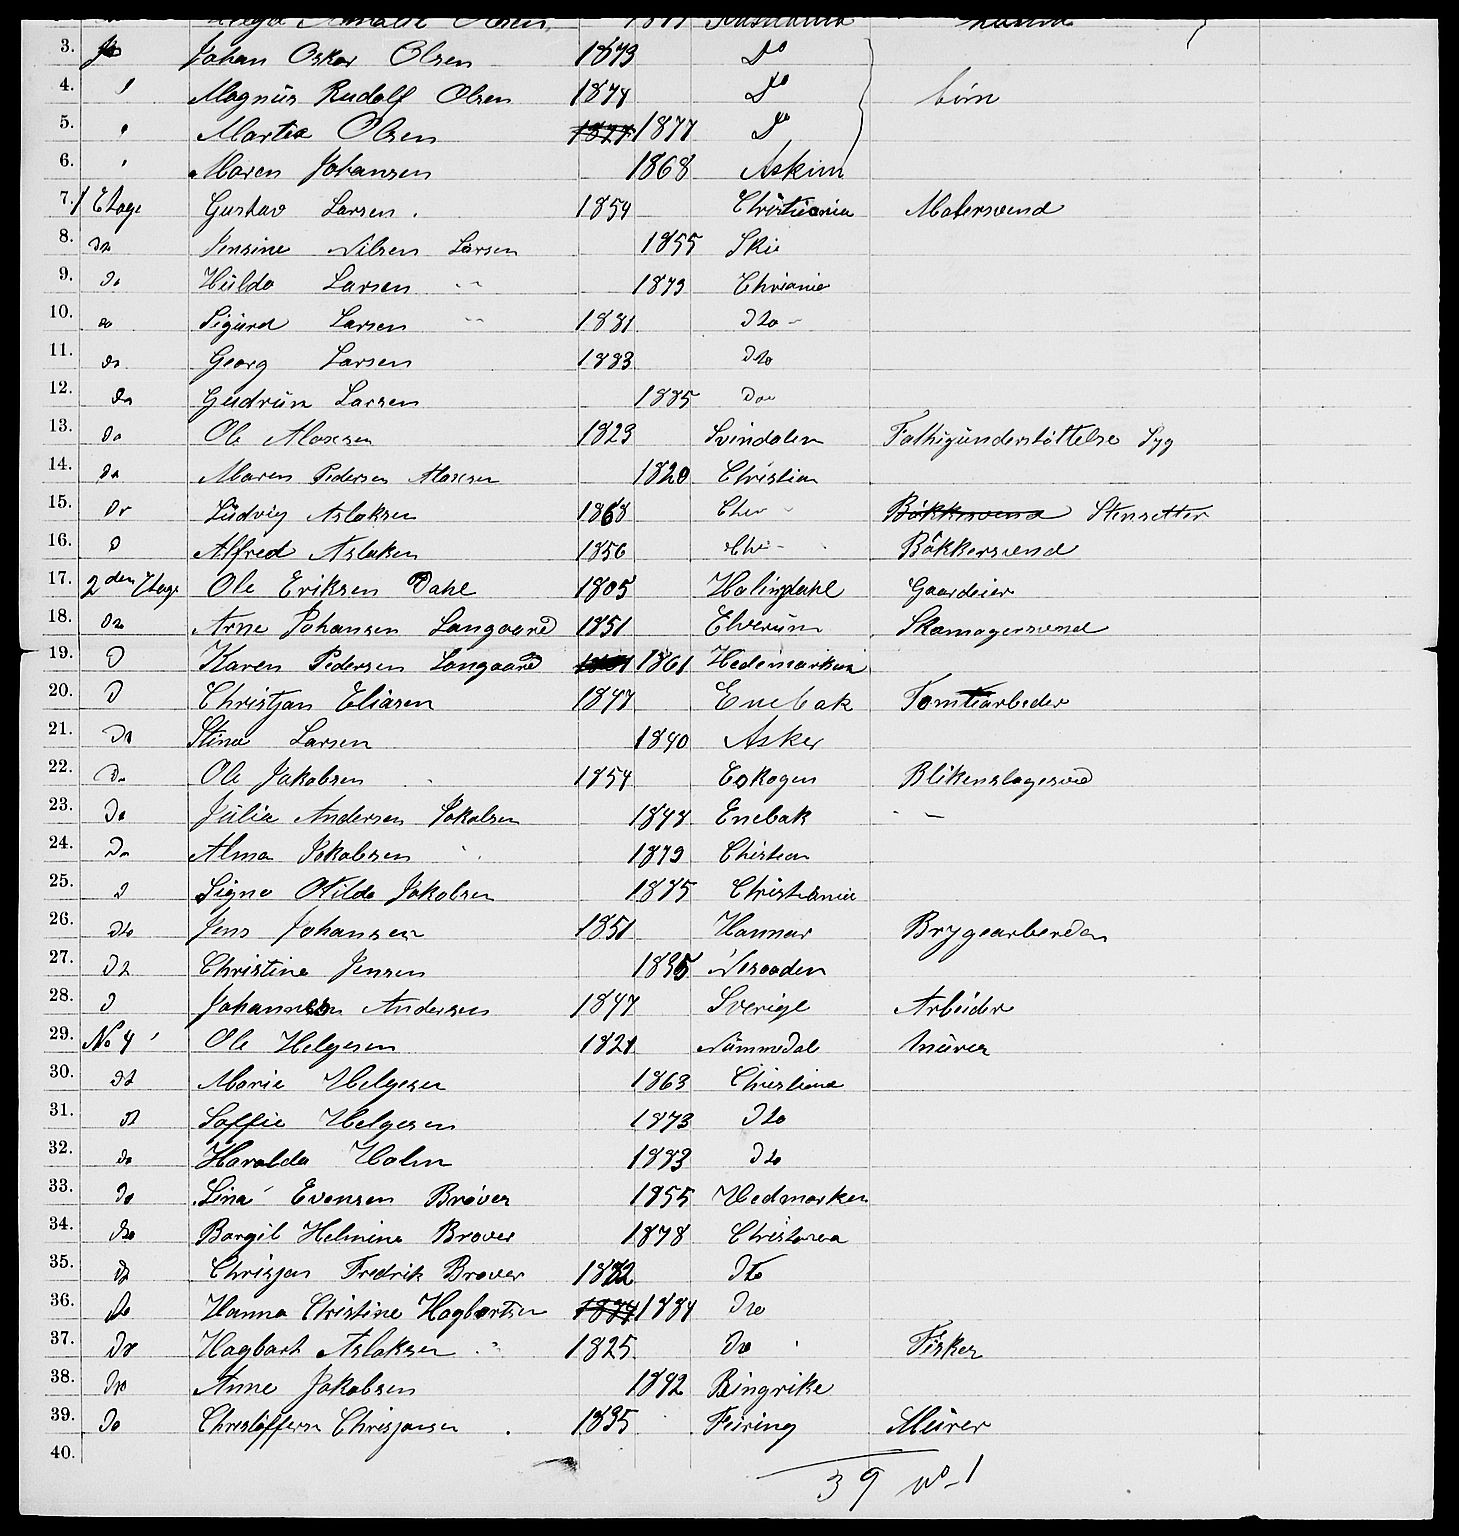 3. Do Johan Oskar Olsen 1873 Do
4. " Magnus Rudolf Olsen 1874 Do børn
5. " Martea Olsen 1877 1877 Do
6. " Maren Johansen 1868 Askim
7. 1 Etage Gustav Larsen. 1854 Christiania Malersvend
8. Do Jensine Nilsen Larsen 1855 Ski
9. Do Hulda Larsen " 1879 Chriania
10. Do Sigurd Larsen " 1881 Dto -
11. Do Georg Larsen 1883 Dto
12. Do Gudrun Larsen 1885 Do
13. Do Ole Alaxsen 1823 Svindalen Fathigunderstøttelse Syg
14. Do Maren Pedersen Alaxsen 1820 Christian
15. Do Ludvig Aslaksen 1868 Chr - Bøkkersvend Stensetter
16. D Alfred Aslaken 1856 Chr - Bøkkersvend
17. 2den Etage Ole Eriksen Dahl 1805 Halingdahl Gaardeier
18. Do Arne Johansen Langaard 1851 Elverum Skomagersvend
19. D Karen Pedersen Langaard 1861 Hedemarken
20. D Christjan Eliasen 1847 Enebak Tomtearbeder
21. Do Stina Larsen 1840 Asker
22. Do Ole Jakobsen 1854 Eskogen Blikenslagesvd
23. Do Julia Andersen Jakobsen 1848 Enebak - -
24. Do Alma Jakobsen 1879 Christian
25. D Signe Otilde Jakobsen 1885 Christiania
26. Dto Jens Johansen 1851 Hammar Brygearberder
27. Dt Christine Jensen 1835 Nesodden
28. D Johannesen Andersen 1847 Sverige Arbeider
29. No 4 Ole Helgesen 1821 Nummedal Murer
30. Dt Marie Helgesen 1863 Christiana
31. Dt Soffie Helgesen 1873 Dto
32. Do Haralda Holm 1883 Dto
33. Do Lina Evensen Brøver 1855 Hedmarken
34. Do Borgil Helmine Brover 1878 Christania
35. Dt Chrisjan Fredrik Brover 1882 Dto
36. Do Hanna Christine Hagbartsen 1884 1884 Dto
37. Do Hagbart Aslaksen 1825 Do Fisker
38. Do Anne Jakobsen 1842 Ringrike
39. Do Christoffersen Chrisjansen 1835 Feiring Murer
40.
39 No 1